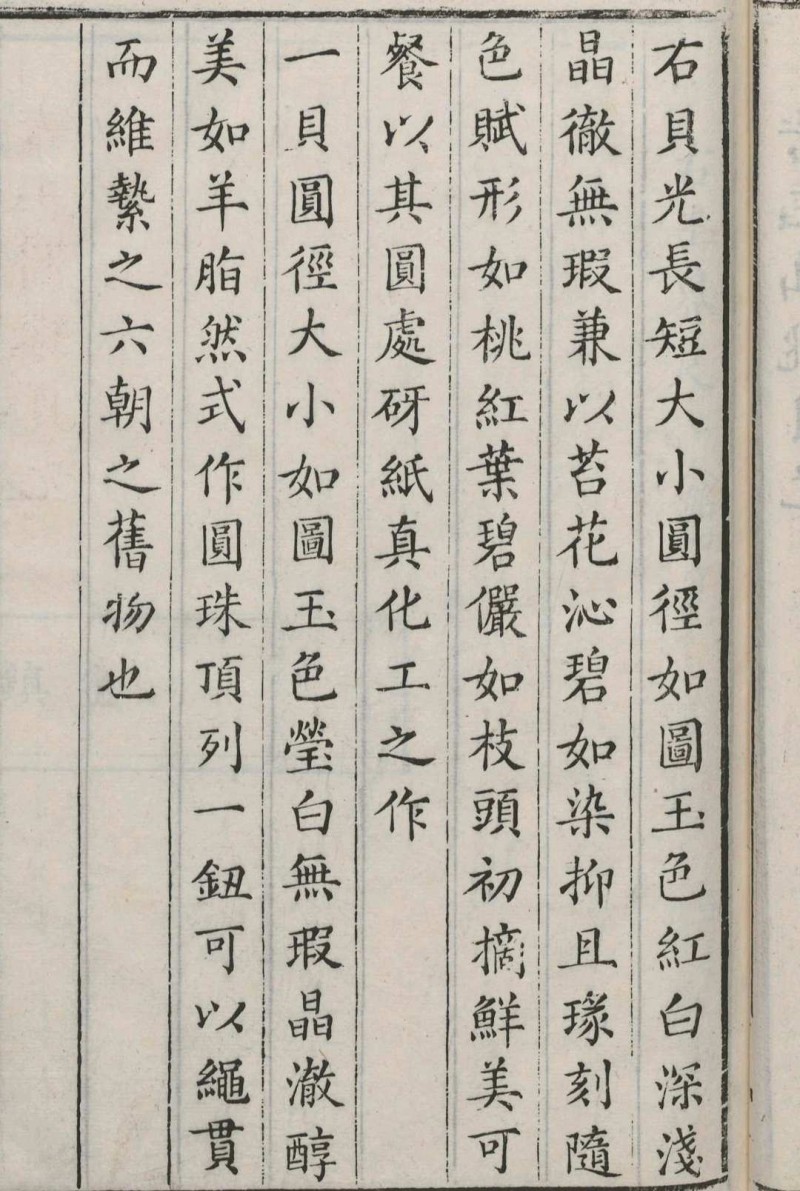 右貝光長短大小圓徑如圖玉色紅白深淺
晶徹無瑕兼以苔花沁碧如染抑且瑑刻隨
色賦形如桃紅葉碧儼如枝頭初摘鮮美可
餐以其圓處砑紙真化工之作
一貝圓徑大小如圖玉色瑩白無瑕晶澈醇
美如羊脂然式作圓珠頂列一鈕可以繩貫
而維縶之六朝之舊物也